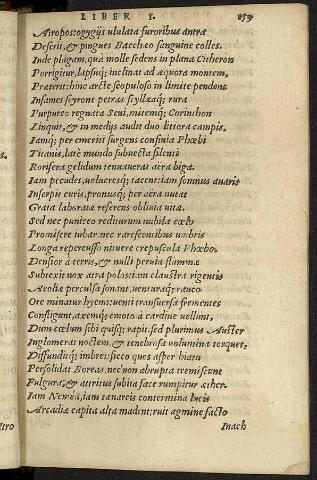 LIBER I. 159
Atropos: ogygiis ululata furoribus antra
Deserit, & pingues Bacchæo sanguine colles.
Inde plagam, qua molle sedens in plana Citheron
Porrigitur, lapsuq; inclinat ad æquora montem,
Præterit: hinc arcte scopuloso in limite pendens
Infames scyrone petras, scyllæaq; rura
Purpureo regnata Seni, mitemq; Corinthon
Linquit, & in medijs audit duo littora campis.
Iamq; per emeriti surgens confinia Phœbi
Titanis, latè mundo subuecta silenti
Rorifera gelidum tenuauerat aëra biga.
Iam pecudes, uolucresq; tacent: iam somnus auaris
Inserpit curis, pronusq; per aëra nutat
Grata laboratæ referens obliuia uitæ.
Sed nec puniceo rediturum nubila cœlo
Promisere iubar, nec rarescentibus umbris
Longa repercusso nituere crepuscula Phœbo.
Densior à terris, & nulli peruia flammæ
Subtexit nox atra polos: iam claustra rigentis
Aeoliæ percussa sonant, uenturaq; rauco
Ore minatur hyems: uenti transuersa frementes
Confligunt, axemq; emoto à cardine uellunt,
Dum cœlum sibi quisq; rapit. sed plurimus Auster
Inglomerat noctem, & tenebrosa uolumina torquet,
Diffunditq; imbres: siccos quos asper hiatu
Persolidat Boreas, nec non abrupta tremiscunt
Fulgura, & attritus subita face rumpitur æther.
Iam Nemea, iam tænareis contermina lucis
Arcadiæ capita alta madent: ruit agmine facto
Inach